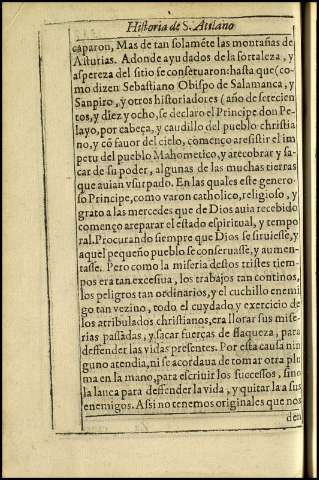 Historia de S. Atilano
caparon, Mas de tan solamẽte las montañas de
Asturias. Adonde ayudados de la fortaleza, y
aspereza del sitio se conseruaron: hasta que (co-
mo dizen Sebastiano Obispo de Salamanca, y
Sanpiro, y otros historiadores (año de setecien
tos, y diez y ocho, se declaro el Principe don Pe
layo, por cabeça, y caudillo del pueblo christia
no, y cõ fauor del cielo, començo a resistir el im
petu del pueblo Mahometico, y a recobrar y sa-
car de su poder, algunas de las muchas tierras
que auian vsurpado. En las quales este genero-
so Principe, como varon catholico, religioso, y
grato a las mercedes que de Dios auia recebido
començo a reparar el estado espiritual, y tempo
ral. Procurando siempre que Dios se siruiesse, y
aquel pequeño pueblo se conseruasse, y aumen-
tasse. Pero como la miseria destos tristes tiem-
pos era tan excessiua, los trabajos tan continos,
los peligros tan ordinarios, y el cuchillo enemi
go tan vezino, todo el cuydado y exercicio de
los atribulados christianos, era llorar sus mise-
rias passadas, y sacar fuerças de flaqueza, para
deffender las vidas presentes. Por esta causa nin
guno atendia, ni se acordaua de tomar otra plu
ma en la mano, para escriuir los successos, sino
la lança para deffender la vida, y quitar la a sus
enemigos. Assi no tenemos originales que nos
den